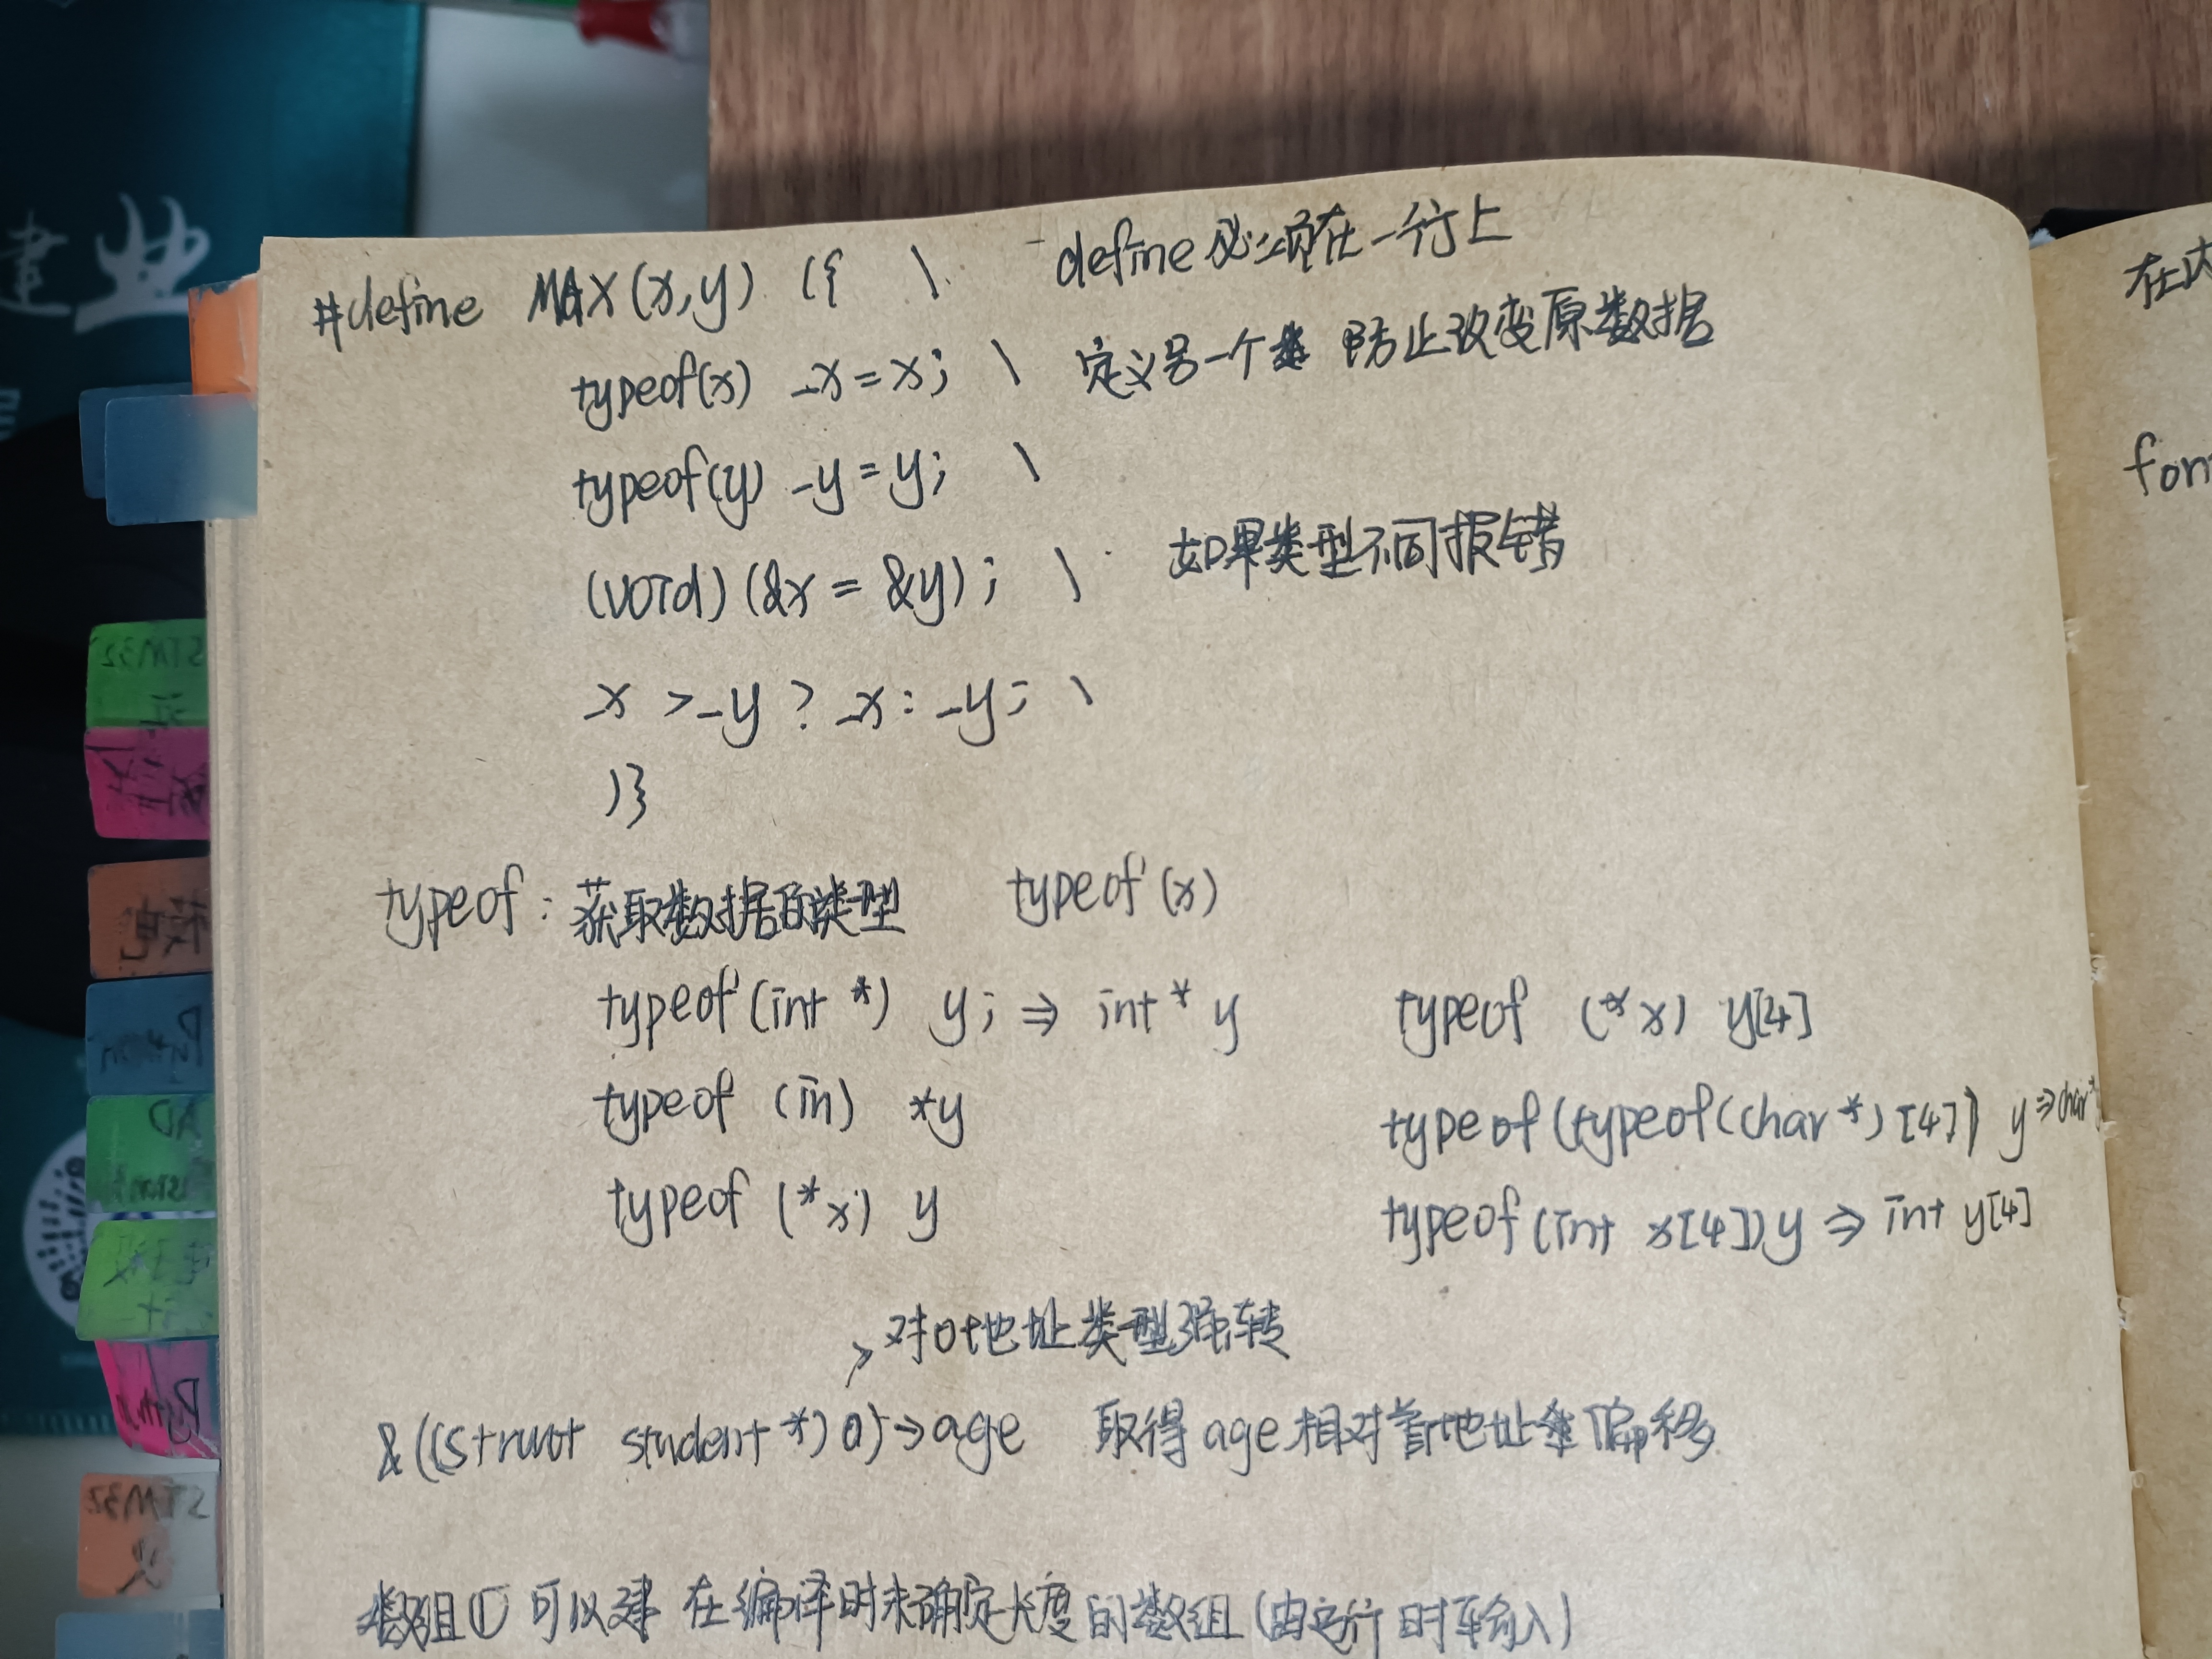 建业
#define MAX(x,y) ({ \ define必须在一行上
typeof(x) _x = x; \ 定义另一个 防止改变原数据
typeof(y) _y = y; \
(void)(&x = &y); \ 如果类型不同报错
_x > _y ? _x : _y; \
)}
typeof: 获取数据的类型 typeof(x)
typeof(int *) y; ⇒ int* y typeof (*x) y[4]
typeof (in) *y typeof(typeof(char*)[4]) y ⇒ char*
typeof (*x) y typeof(int x[4])y ⇒ int y[4]
对0地址类型强转
&((struct student*)0)→age 取得age相对首地址 偏移
数组① 可以建 在编译时未确定长度的数组(由运行时 输入)
在
for
STM32
Python
AD
STM32